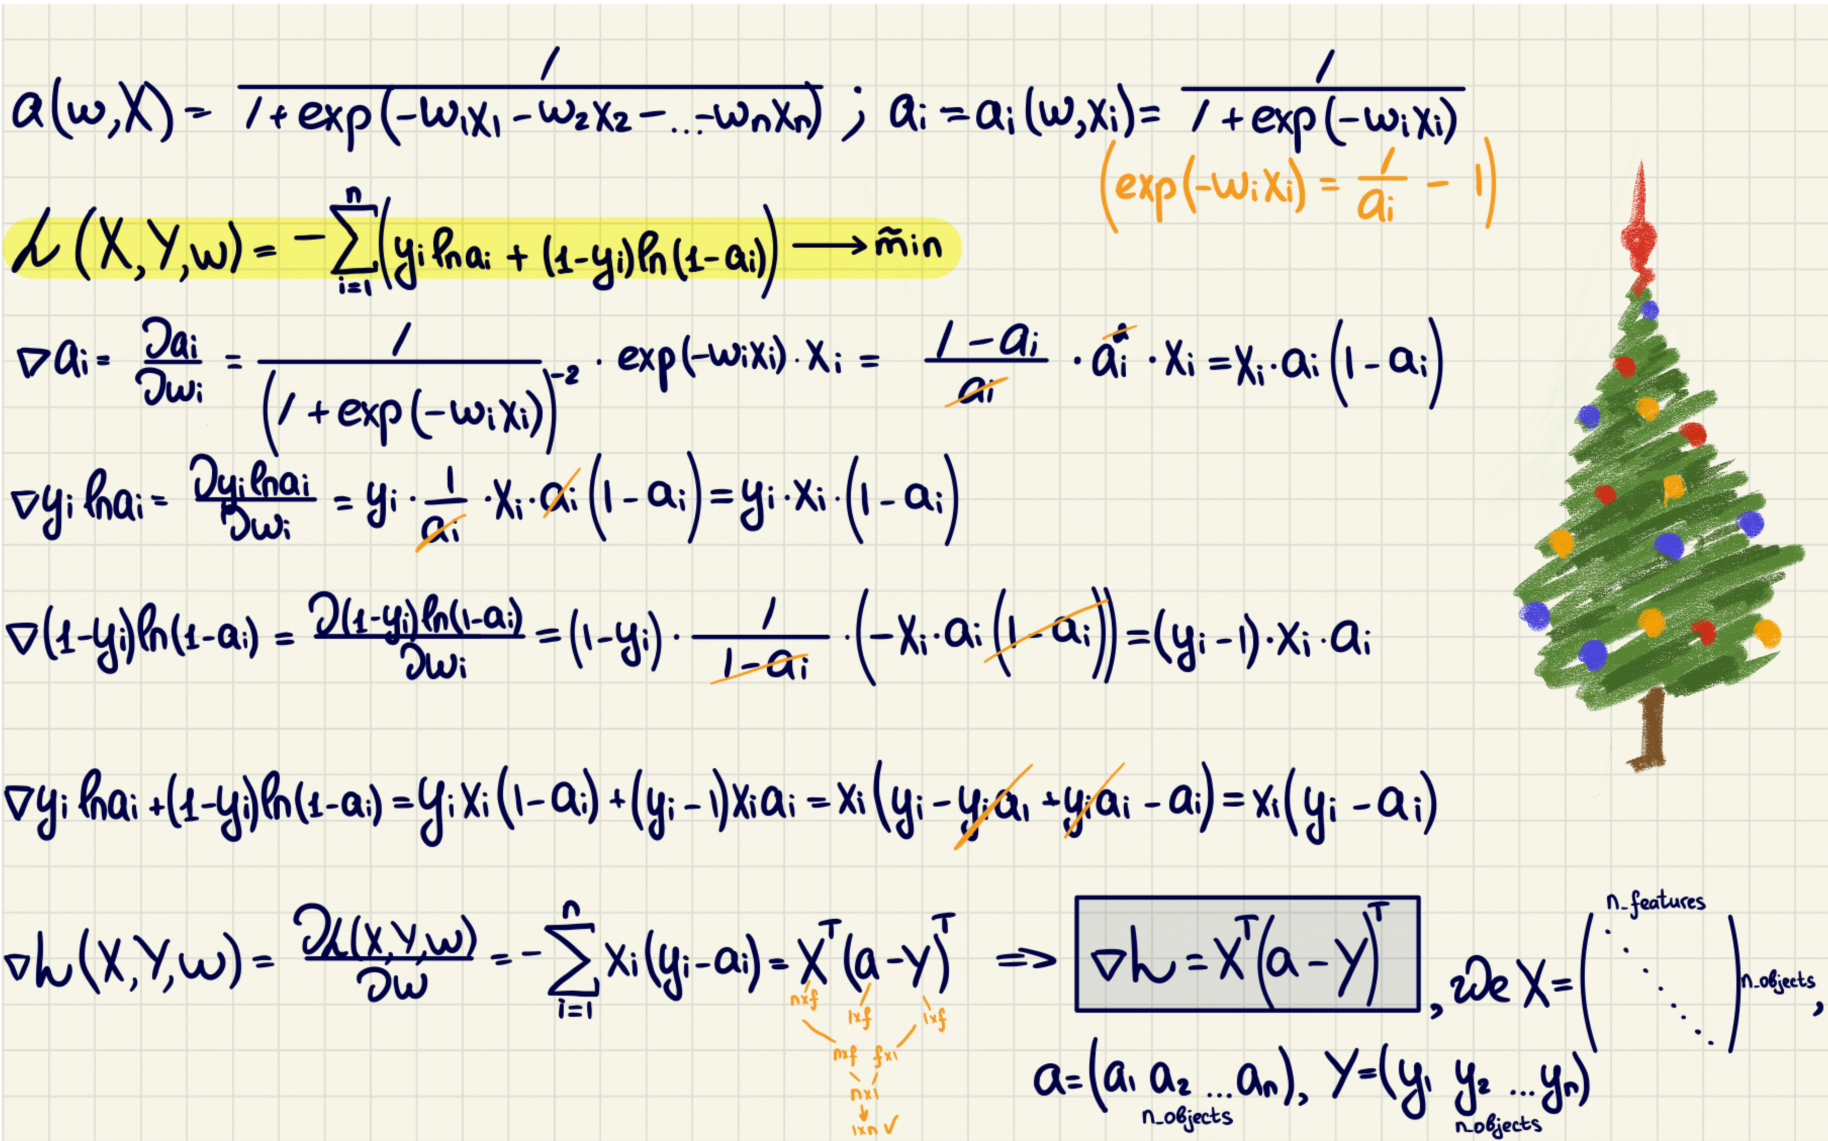 a(w,X) = 1 / (1+exp(-w₁x₁ - w₂x₂ - ... - wₙxₙ)) ; aᵢ = aᵢ(w,xᵢ) = 1 / (1+exp(-wᵢxᵢ))
(exp(-wᵢxᵢ) = 1/aᵢ - 1)
h(X,Y,w) = -∑ᵢ₌₁ⁿ (yᵢ ln aᵢ + (1-yᵢ) ln(1-aᵢ)) ⟶ m̃in
∇aᵢ = ∂aᵢ/∂wᵢ = 1 / (1+exp(-wᵢxᵢ))⁻² · exp(-wᵢxᵢ) · xᵢ = (1-aᵢ)/aᵢ · aᵢ² · xᵢ = xᵢ · aᵢ (1-aᵢ)
∇yᵢ ln aᵢ = ∂yᵢ ln aᵢ/∂wᵢ = yᵢ · 1/aᵢ · xᵢ · aᵢ (1-aᵢ) = yᵢ · xᵢ · (1-aᵢ)
∇(1-yᵢ) ln(1-aᵢ) = ∂(1-yᵢ) ln(1-aᵢ)/∂wᵢ = (1-yᵢ) · 1/(1-aᵢ) · (-xᵢ · aᵢ (1-aᵢ)) = (yᵢ-1) · xᵢ · aᵢ
∇yᵢ ln aᵢ + (1-yᵢ) ln(1-aᵢ) = yᵢxᵢ(1-aᵢ) + (yᵢ-1)xᵢaᵢ = xᵢ(yᵢ - yᵢaᵢ + yᵢaᵢ - aᵢ) = xᵢ(yᵢ-aᵢ)
∇h(X,Y,w) = ∂h(X,Y,w)/∂w = -∑ᵢ₌₁ⁿ xᵢ(yᵢ-aᵢ) = Xᵀ(a-Y)ᵀ ⇒ ∇h = Xᵀ(a-Y)ᵀ , где X = ( ⋱ ) ,
n_features
n_objects
n×f 1×f 1×f
n×f f×1
n×1
1×n ✓
a = (a₁ a₂ ... aₙ), Y = (y₁ y₂ ... yₙ)
n_objects n_objects